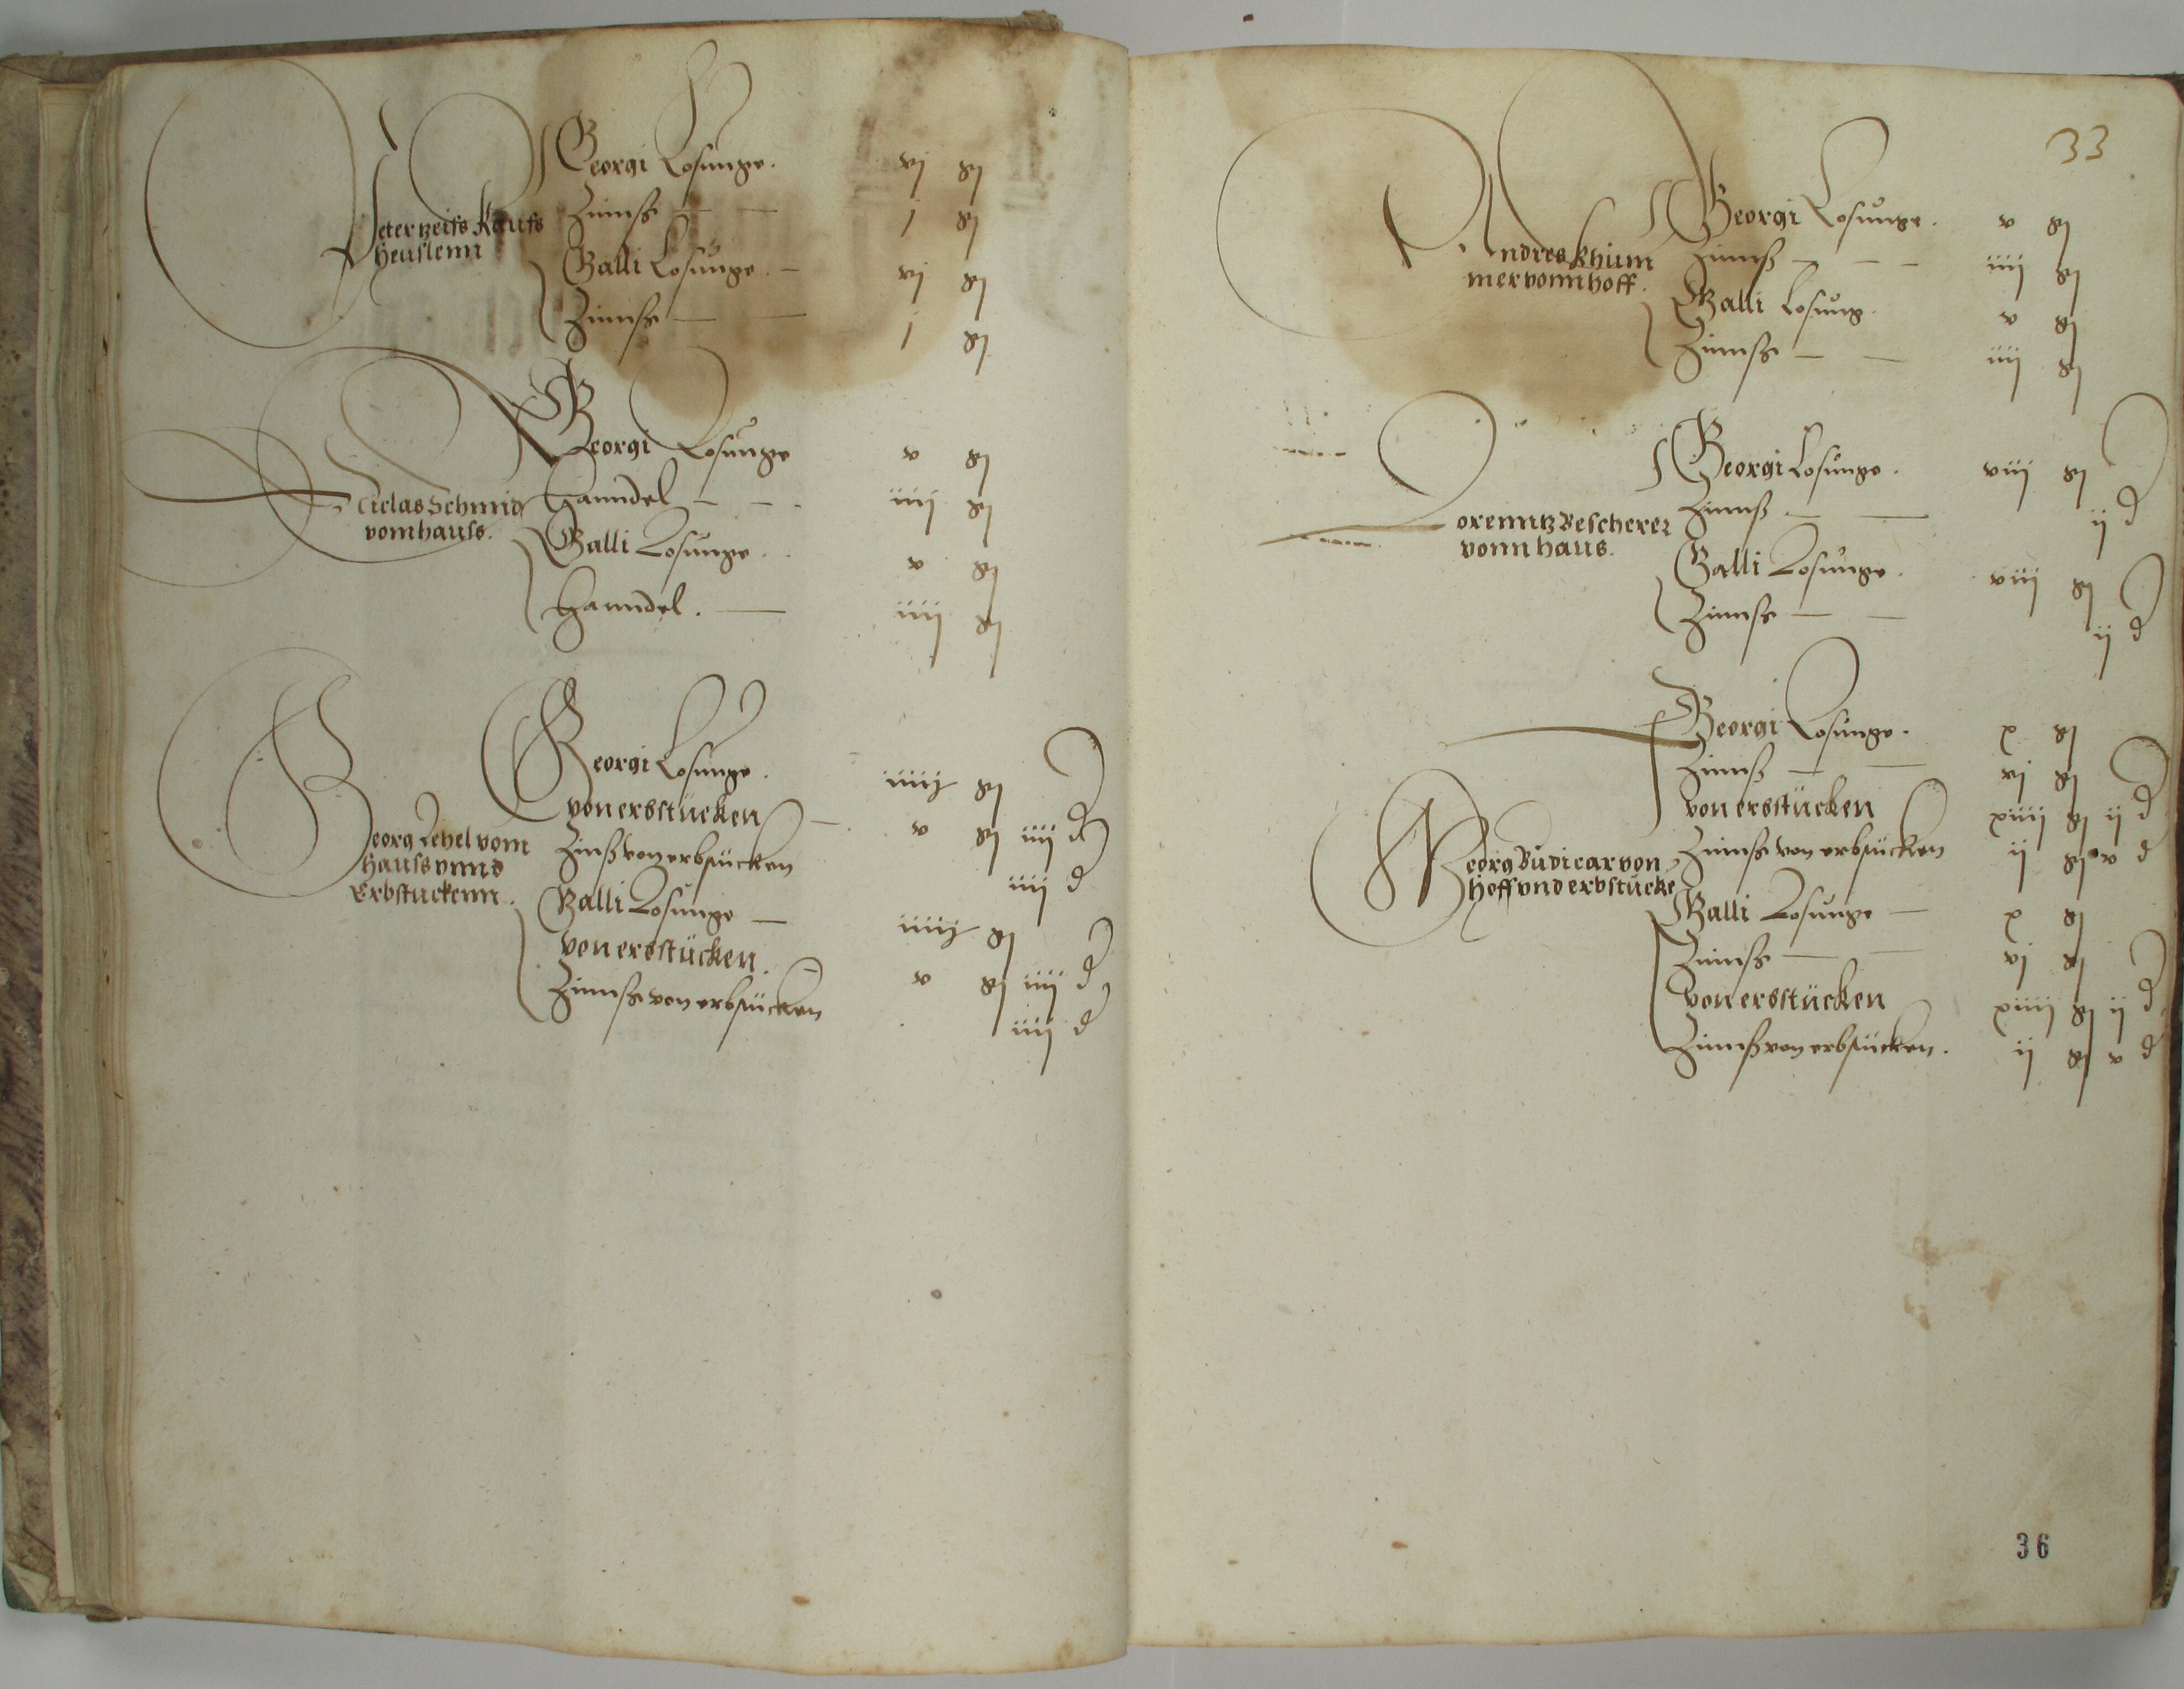 Peter zeiss Kaufs
heuslenn
Georgi Losunge. vj gl
Zinnß — — j gl
Galli Losunge. — vj gl
Zinnße — — j gl
Niclas Schmid
vom hauss.
Georgi Losunge v gl
Hanndel — — . iiij gl
Galli Losunge . . v gl
Hanndel . — iiij gl
Georg vom
hauss vnnd
Erbstuckenn.
Georgi Losunge. gl
von erbstücken — v gl iiij d
Zinß von erbstücken iiij d
Galli Losunge — gl
von erbstücken. — v gl iiij d
Zinnße von erbstücken iiij d
33
Andres Khüm
mer vonn hoff.
Georgi Losunge. v gl
Zinnß — — — iiij gl
Galli Losung. v gl
Zinnße — — iiij gl
Lorenntz Bescherer
vonn haus.
Georgi Losunge. viij gl
Zinnß — — ij d
Galli Losunge. viij gl
Zinnße — — ij d
Georg Budicar von
hoff vnd erbstücke
Georgi Losunge. x gl
Zinnß — — vj gl
von erbstücken xiiij gl ij d
Zinnße von erbstücken ij gl v d
Galli Losunge — x gl
Zinnße — — vj gl
von erbstücken xiiij gl ij d
Zinnß von erbstücken. ij gl v d
36